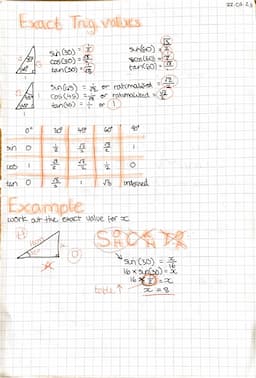 Exact Trig values
sin(30) = 1/2
cos(30) = √3/2
tan(30) =
sin(60) = √3/2
cos(60) = 1/2
tan(60) =
sin(45) = or rationalised = √2/2
cos(45) = or rationalised = √2/2
tan(45) = 1/1 or 1
0° 30° 45° 60° 90°
sin 0 1/2 √2/2 √3/2 1
cos 1 √3/2 √2/2 1/2 0
tan 0 1 √3 undefined
Example
work out the exact value for x
SOHCAHTOA
sin(30) = x/16
16 × sin(30) = x
16 × 1/2 = x
table ↑ x = 8